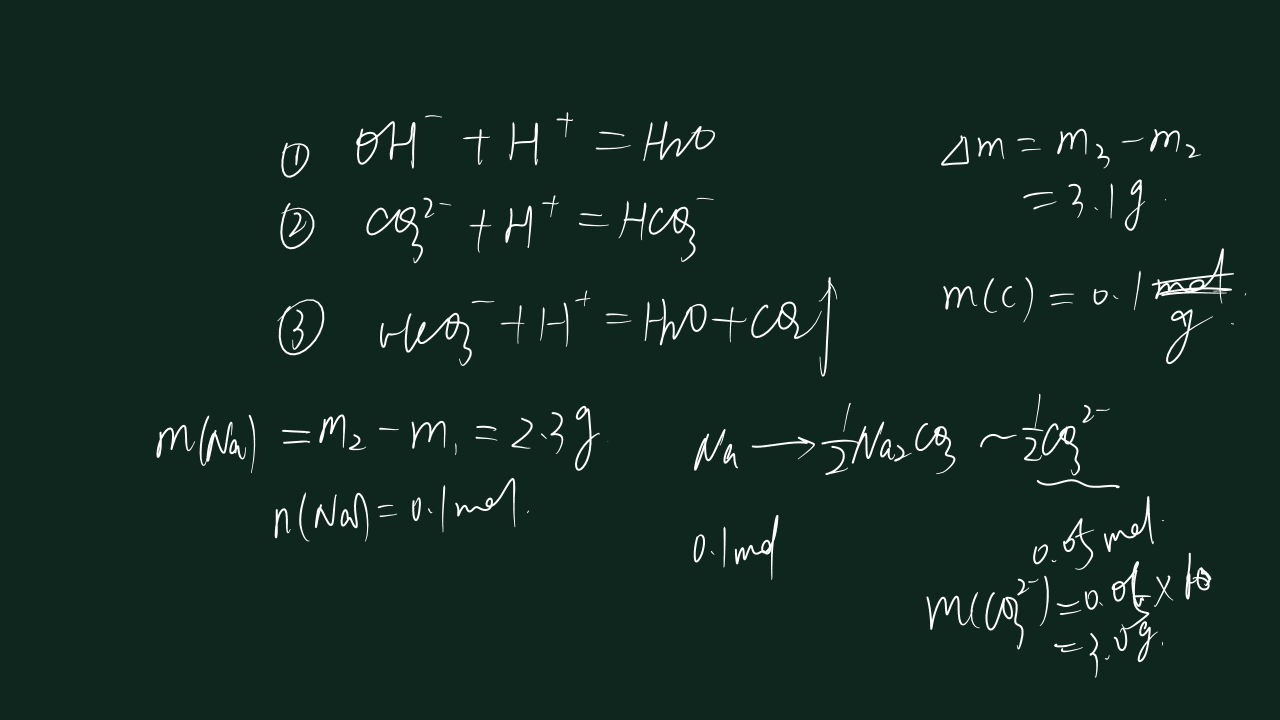 ① OH⁻ + H⁺ = H₂O
② CO₃²⁻ + H⁺ = HCO₃⁻
③ HCO₃⁻ + H⁺ = H₂O + CO₂↑
Δm = m₃ - m₂
= 3.1g.
m(C) = 0.1 g
m(Na) = m₂ - m₁ = 2.3g
n(Na) = 0.1mol.
Na → ½Na₂CO₃ ~ ½CO₃²⁻
0.1mol
0.05mol.
m(CO₃²⁻) = 0.05 ×
= 3.0g.